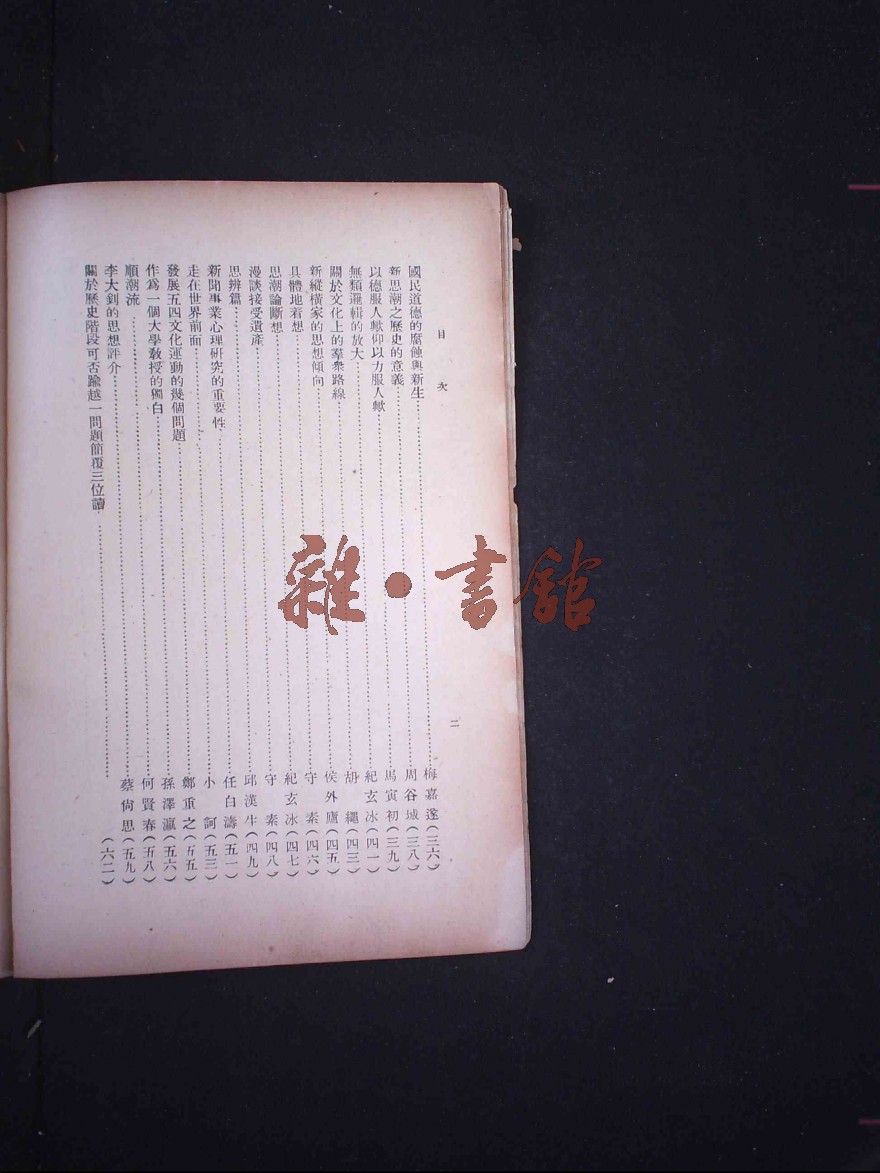 目次
二
國民道德的腐蝕與新生……梅嘉蓬(三六)
新思潮之歷史的意義……周谷城(三八)
以德服人歟仰以力服人歟……馬寅初(三九)
無類邏輯的放大……紀玄冰(四一)
關於文化上的羣衆路線……胡繩(四三)
新縱橫家的思想傾向……侯外廬(四五)
具體地着想……守素(四六)
思潮論斷想……紀玄冰(四七)
漫談接受遺產……守素(四八)
思辨篇……邱漢生(四九)
新聞事業心理研究的重要性……任白濤(五一)
走在世界前面……小訶(五三)
發展五四文化運動的幾個問題……鄭重之(五五)
作爲一個大學教授的獨白……孫澤瀛(五六)
順潮流……何賢春(五八)
李大釗的思想評介……蔡尙思(五九)
關於歷史階段可否踰越一問題簡覆三位讀……(六二)
雜·書館